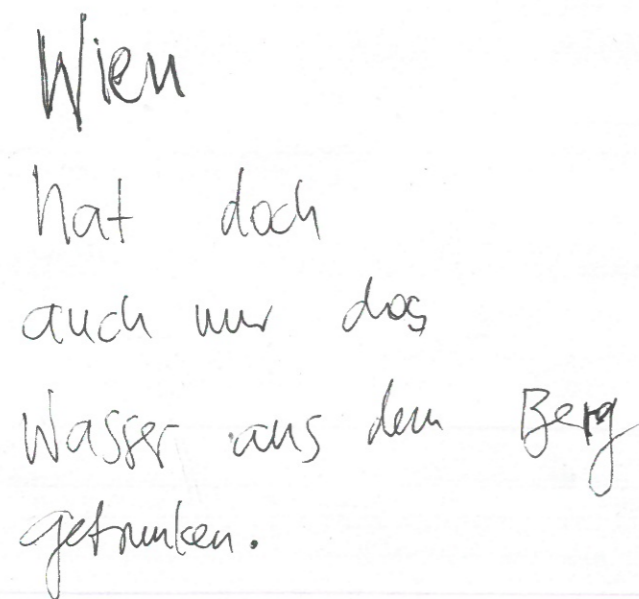 Wien
hat doch
auch nur das
Wasser aus dem Berg
getrunken.